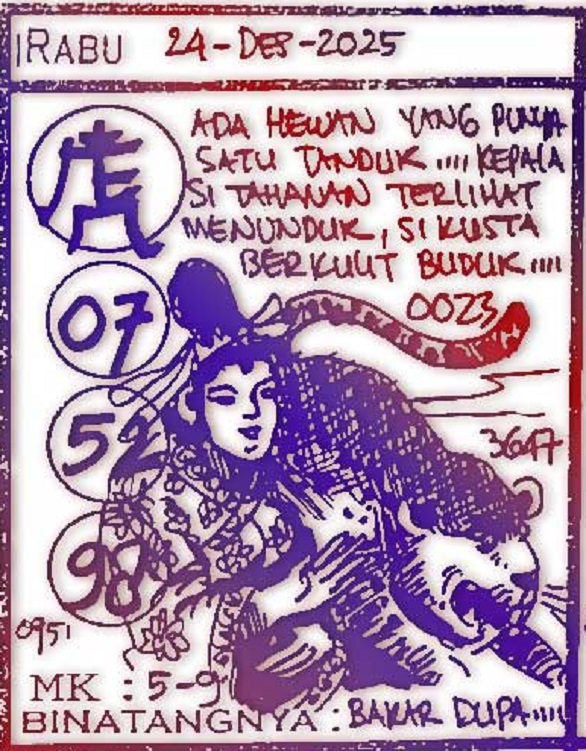 RABU 24-DES-2025
ADA HEWAN YANG PUNYA
SATU TANDUK .... KEPALA
SI TAHANAN TERLIHAT
MENUNDUK, SI KUSTA
BERKULIT BUDUK....
0023
07
52
3647
98
0951
MK : 5-9
BINATANGNYA : BAKAR DUPA....